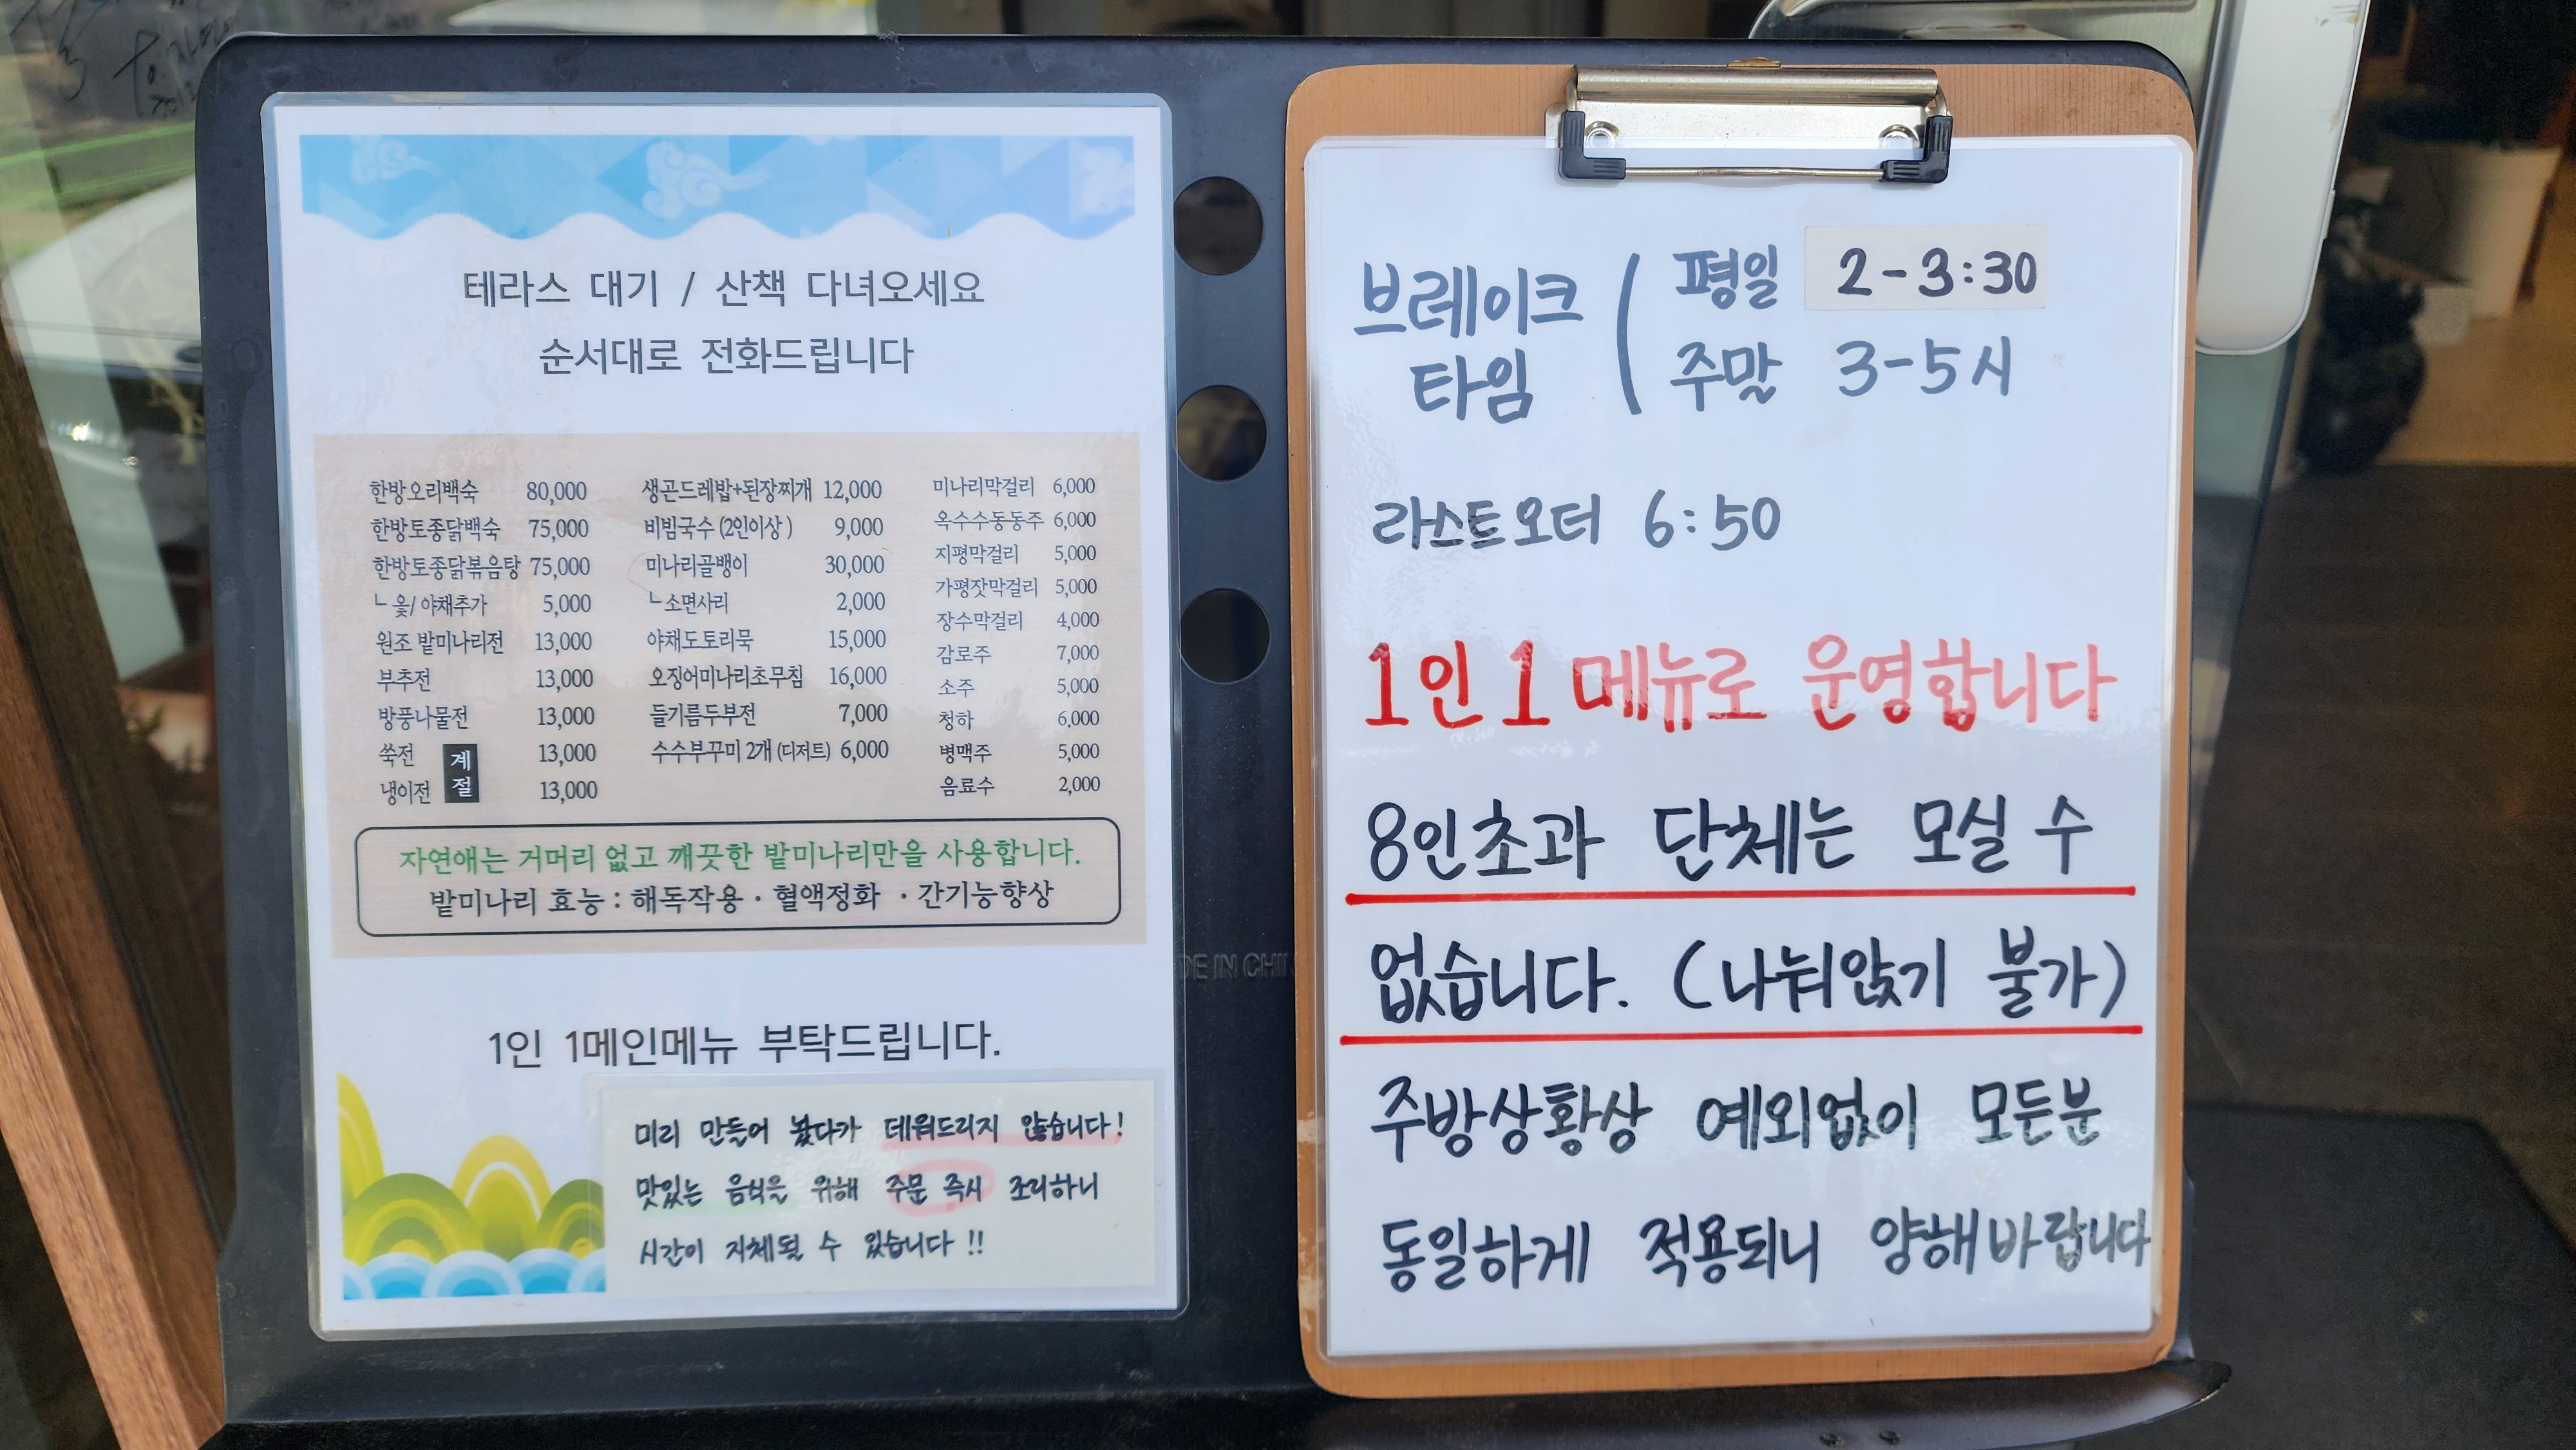 테라스 대기 / 산책 다녀오세요
순서대로 전화드립니다
한방오리백숙 80,000
한방토종닭백숙 75,000
한방토종닭볶음탕 75,000
ㄴ옻/야채추가 5,000
원조 밭미나리전 13,000
부추전 13,000
방풍나물전 13,000
쑥전 13,000
계절
냉이전 13,000
생곤드레밥+된장찌개 12,000
비빔국수 (2인이상) 9,000
미나리골뱅이 30,000
ㄴ소면사리 2,000
야채도토리묵 15,000
오징어미나리초무침 16,000
들기름두부전 7,000
수수부꾸미 2개 (디저트) 6,000
미나리막걸리 6,000
옥수수동동주 6,000
지평막걸리 5,000
가평잣막걸리 5,000
장수막걸리 4,000
감로주 7,000
소주 5,000
청하 6,000
병맥주 5,000
음료수 2,000
자연애는 거머리 없고 깨끗한 밭미나리만을 사용합니다.
밭미나리 효능 : 해독작용 · 혈액정화 · 간기능향상
1인 1메인메뉴 부탁드립니다.
미리 만들어 놨다가 데워드리지 않습니다!
맛있는 음식을 위해 주문 즉시 조리하니
시간이 지체될 수 있습니다!!
브레이크 타임 ( 평일 2-3:30
주말 3-5시
라스트오더 6:50
1인 1메뉴로 운영합니다
8인초과 단체는 모실 수
없습니다. (나눠앉기 불가)
주방상황상 예외없이 모든분
동일하게 적용되니 양해바랍니다